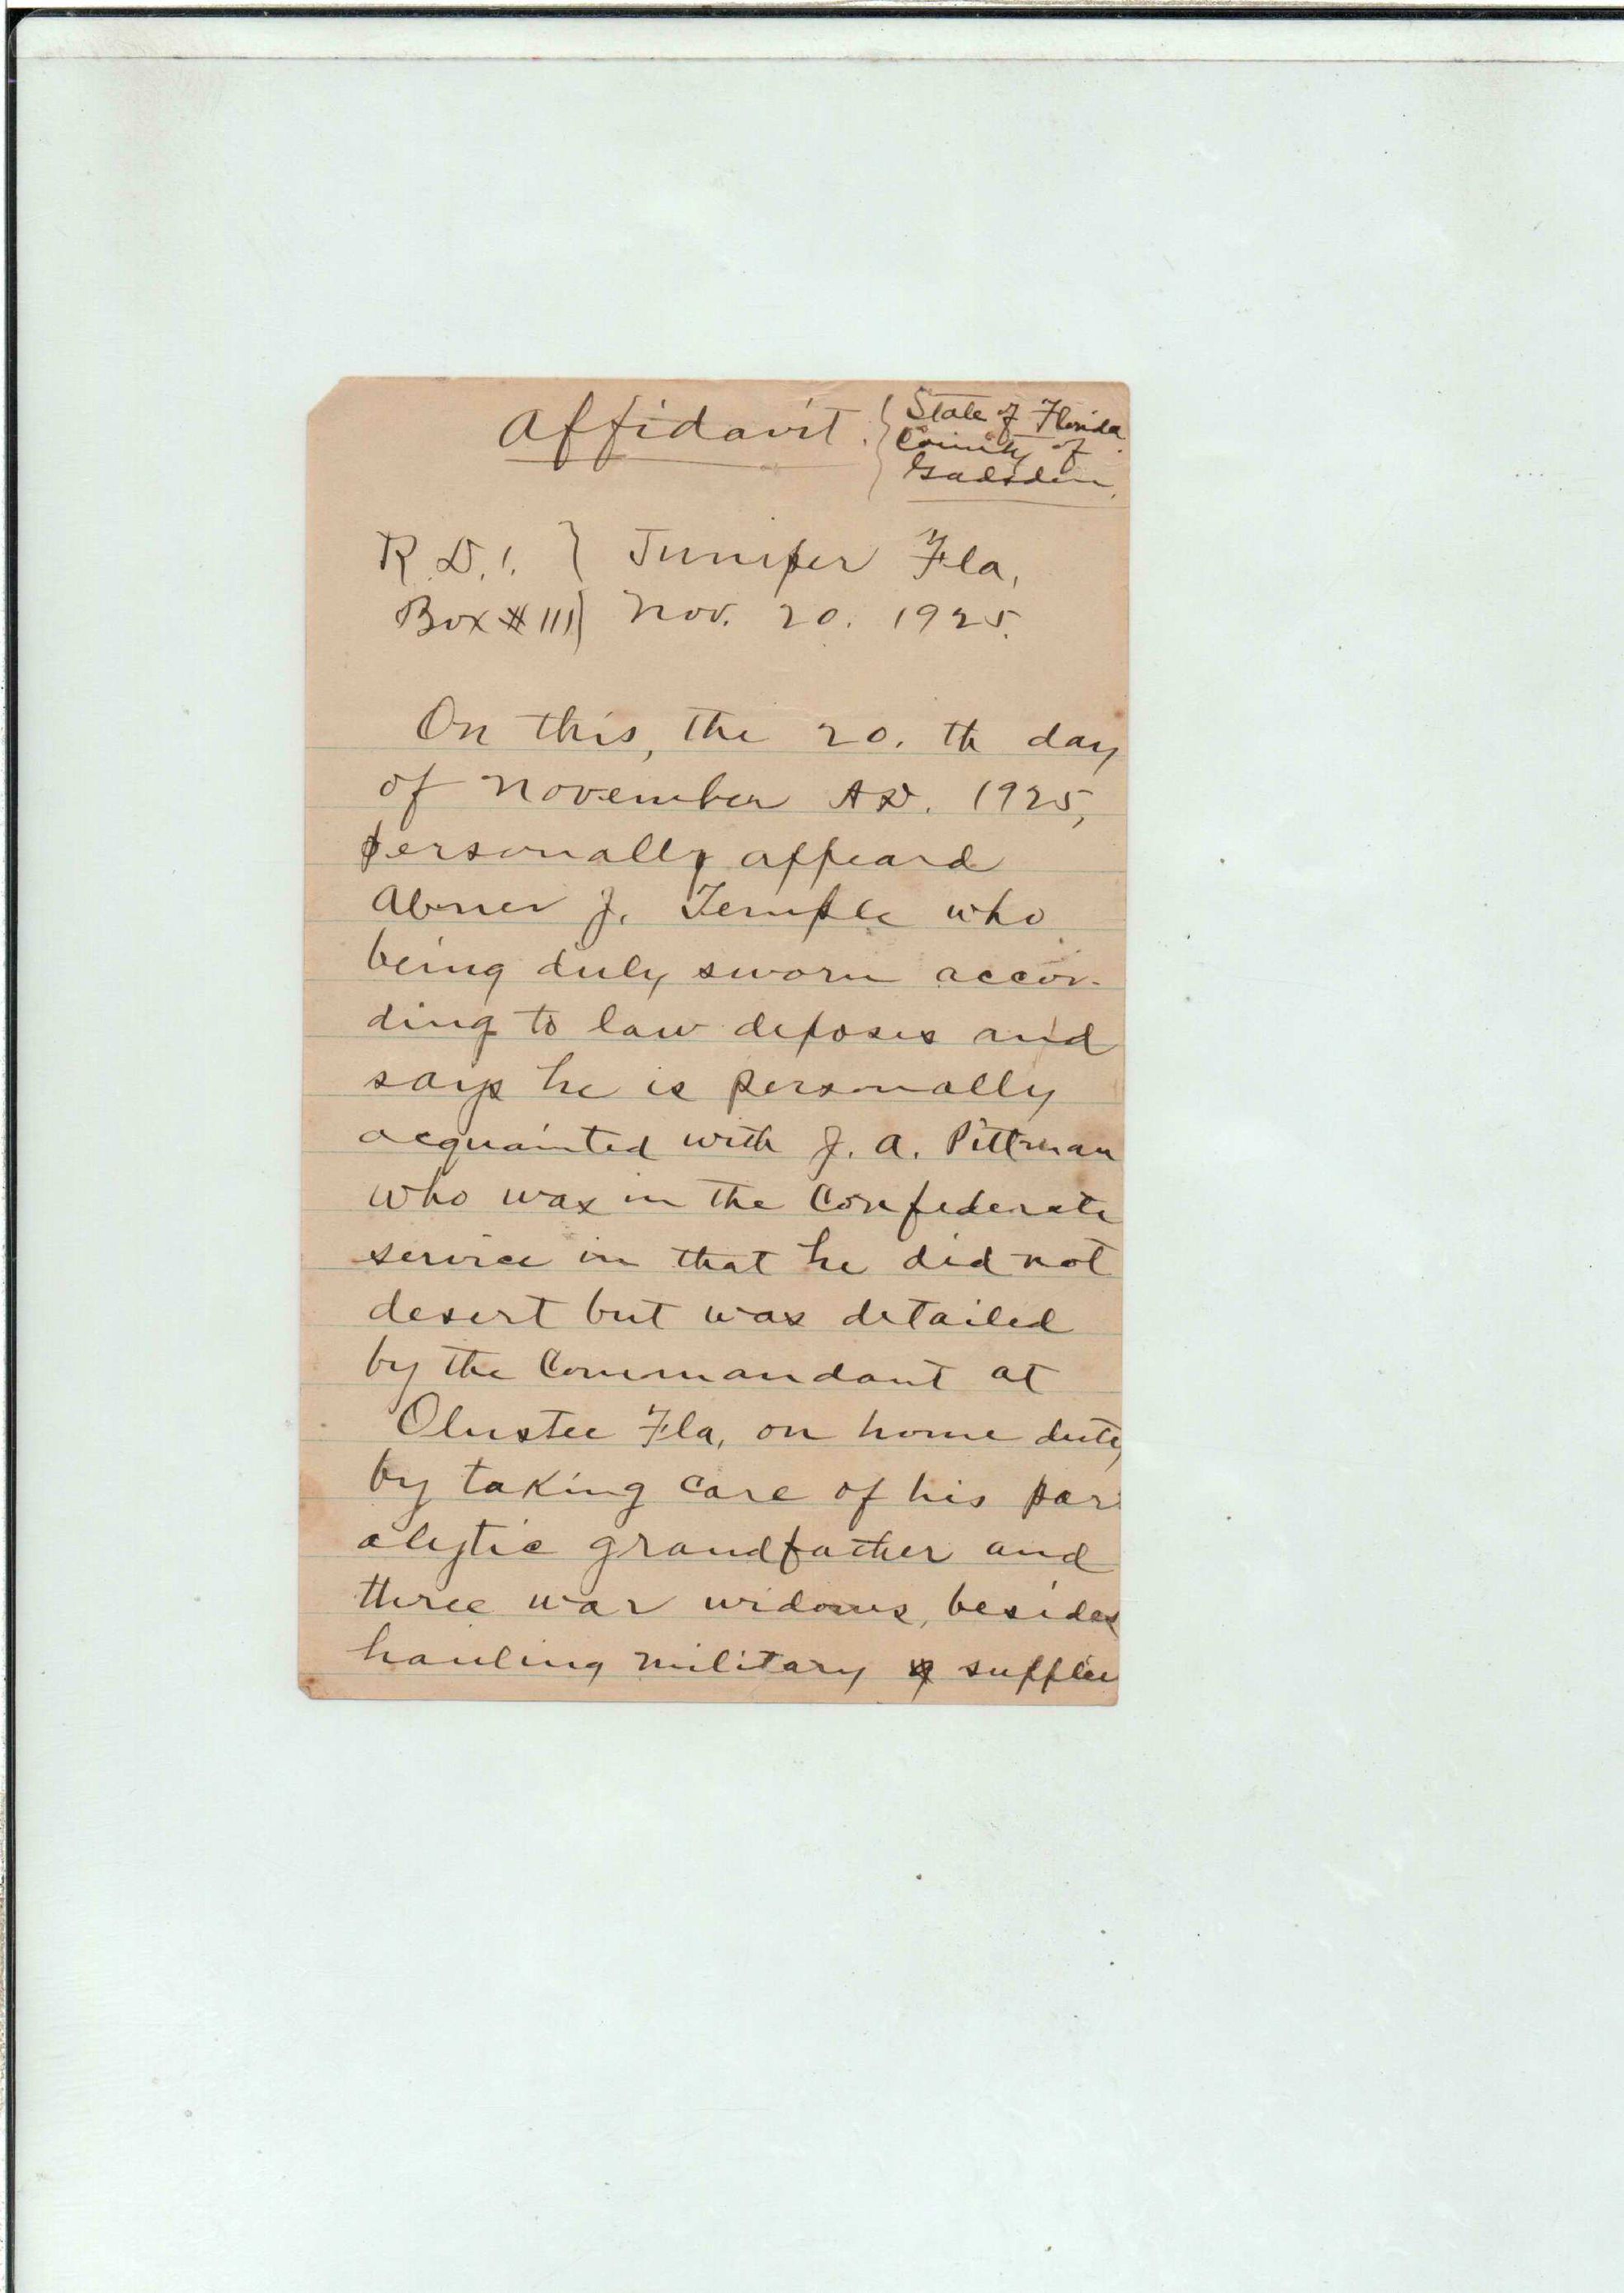 Affidavit.
State of Florida
County of
Gadsden.
R.D.1. } Juniper Fla,
Box # 111} Nov. 20. 1925.
On this, the 20. th day
of November A.D. 1925,
personally appeard
Abner J. Temple who
being duly sworn accor-
ding to law deposes and
says he is personally
acquainted with J. A. Pittman
who was in the Confederate
service in that he did not
desert but was detailed
by the Commandant at
Olustee Fla, on home duty
by taking care of his par
alytic grandfather and
three war widows, besides
hauling military supplies